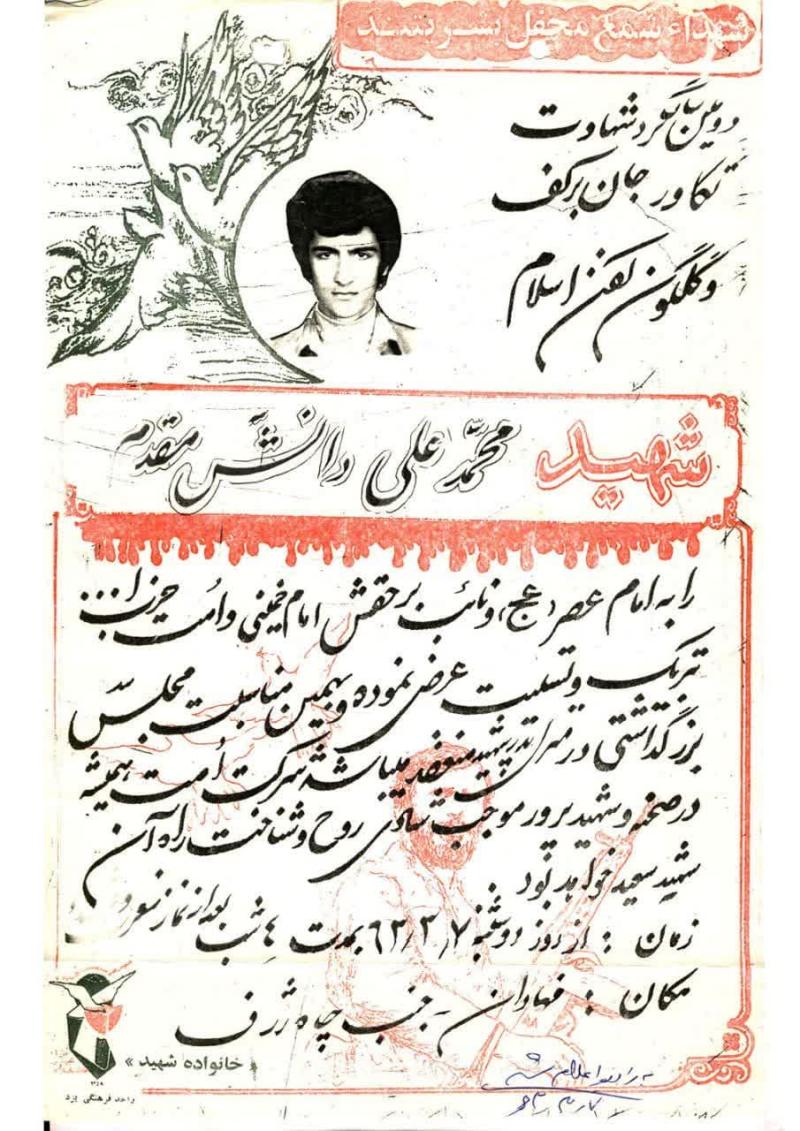 شهداء شمع محفل بشریتند
دومین سالگرد شهادت
تکاور جان برکف
و گلگون کفن اسلام
شهید محمد علی دانش مقدم
را به امام عصر (عج) و نائب برحقش امام خمینی و امت حزب ا...
تبریک و تسلیت عرض نموده و بهمین مناسبت مجلس
بزرگداشتی در منزل پدر شهید منعقد میباشد شرکت اُمت همیشه
در صحنه و شهید پرور موجب شادی روح و شناخت راه آن
شهید سعید خواهد بود
زمان : از روز دوشنبه ۶۳/۳/۷ بمدت ٤ شب بعد از نماز
مکان : فهادان - جنب چاه ژرف
« خانواده شهید »
واحد فرهنگی یزد